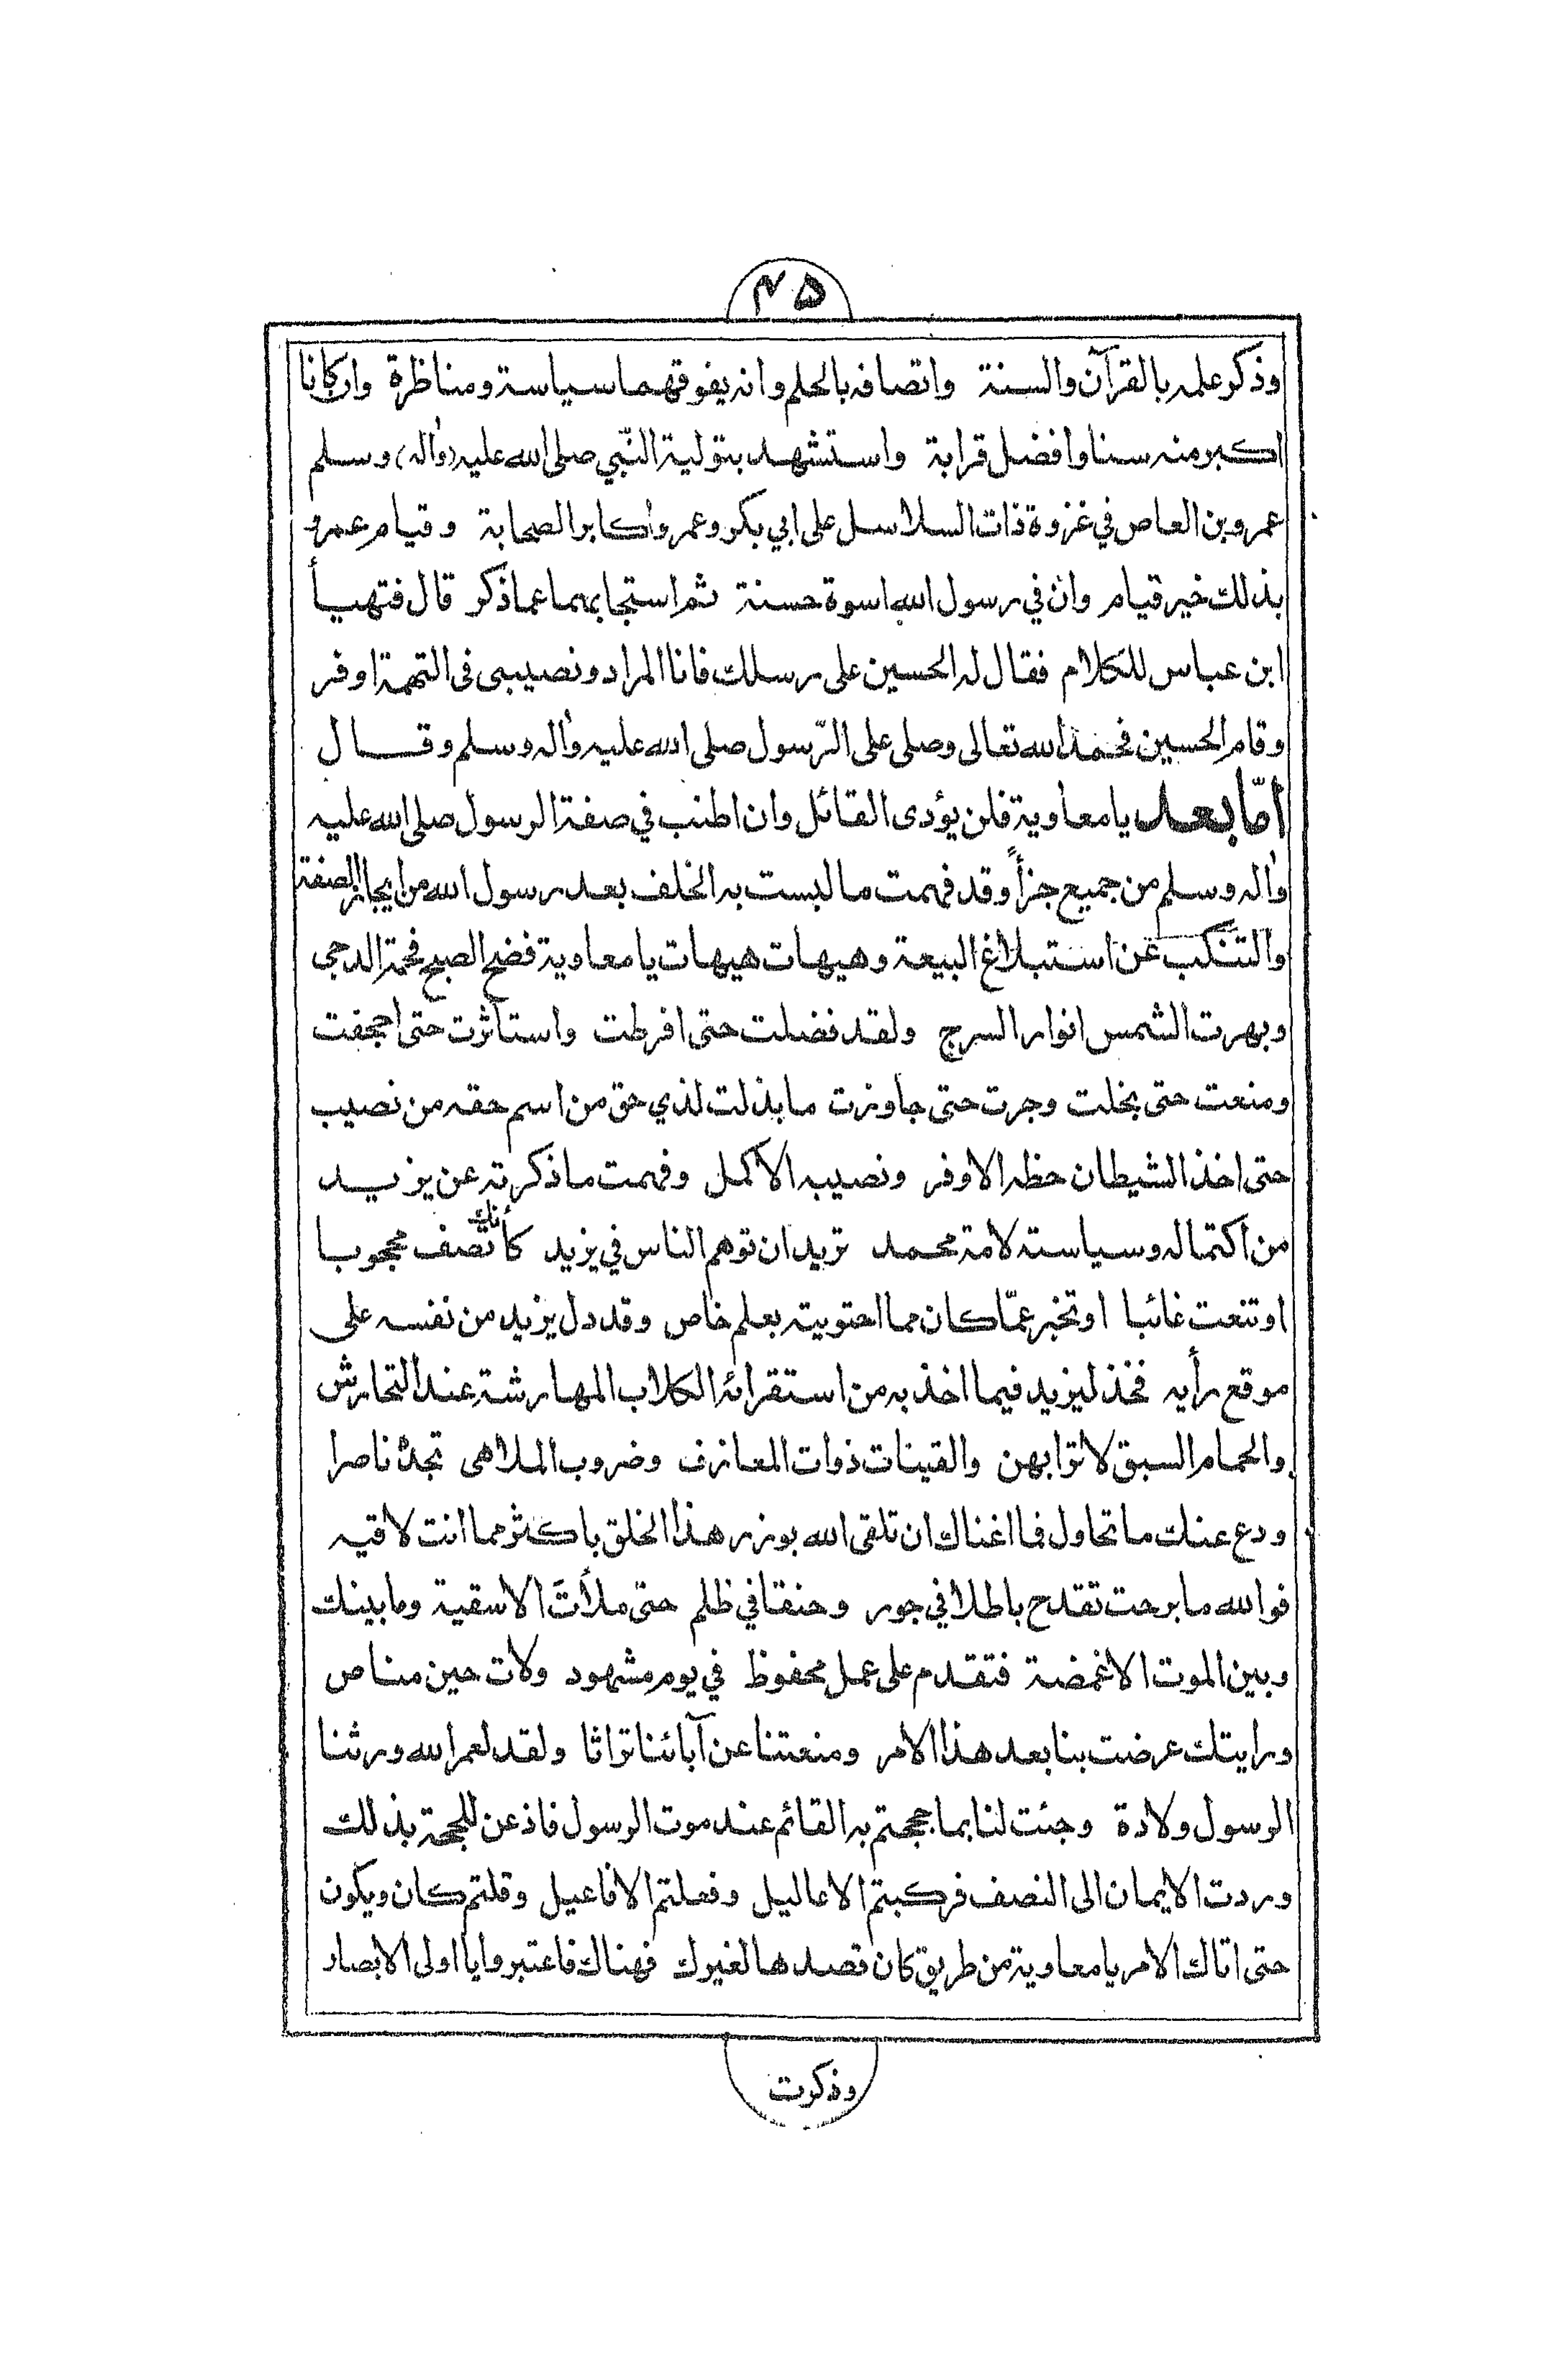 ٤٥
وذكر علمه بالقرآن والسنة واتصافه بالحلم وانه يفوقهما سياسة ومناظرة وان كانا
اكبر منه سنا وافضل قرابة واستشهد بتولية النّبي صلى الله عليه (واله) وسلم
عمرو بن العاص في غزوة ذات السلاسل على ابي بكر وعمر واكابر الصحابة وقيام عمرو
بذلك خير قيام وان في رسول الله اسوة حسنة ثم استجابهما عما ذكر قال فتهيأ
ابن عباس للكلام فقال له الحسين على رسلك فانا المراد ونصيبي فى التهمة اوفر
وقام الحسين فحمد الله تعالى وصلى على الرّسول صلى الله عليه واله وسلم وقال
امّا بعد يا معاوية فلن يؤدى القائل وان اطنب في صفة الرسول صلى الله عليه
واله وسلم من جميع جزأً وقد فهمت ما لبست به الخلف بعد رسول الله من ايجاز الصفة
والتنكب عن استبلاغ البيعة وهيهات هيهات يا معاوية فضح الصبح فحمة الدجى
وبهرت الشمس انوار السرج ولقد فضلت حتى افرطت واستأثرت حتى اجحفت
ومنعت حتى بخلت وجرت حتى جاوزت ما بذلت لذي حق من اسم حقه من نصيب
حتى اخذ الشيطان حظه الاوفر ونصيبه الاكمل وفهمت ما ذكرته عن يزيد
من اكتماله وسياسته لامة محمد تريد ان توهم الناس في يزيد كأنك تصف محجوبا
او تنعت غائبا او تخبر عمّا كان مما احتويته بعلم خاص وقد دل يزيد من نفسه على
موقع رأيه فخذ ليزيد فيما اخذ به من استقرائه الكلاب المهارشة عند التحارش
والحمام السبق لاترابهن والقينات ذوات المعازف وضروب الملاهى تجده ناصرا
ودع عنك ما تحاول فما اغناك ان تلقى الله بوزر هذا الخلق باكثر مما انت لاقيه
فوالله ما برحت تقدح باطلا في جور وحنقا في ظلم حتى ملأت الاسقية وما بينك
وبين الموت الا غمضة فتقدم على عمل محفوظ في يوم مشهود ولات حين مناص
ورايتك عرضت بنا بعد هذا الامر ومنعتنا عن آبائنا تراثا ولقد لعمر الله ورثنا
الرسول ولادة وجئت لنا بما حججتم به القائم عند موت الرسول فاذعن للحجة بذلك
وردت الايمان الى النصف فركبتم الاعاليل وفعلتم الافاعيل وقلتم كان ويكون
حتى اتاك الامر يا معاوية من طريق كان قصدها لغيرك فهناك فاعتبروا يا اولى الابصار
وذكرت